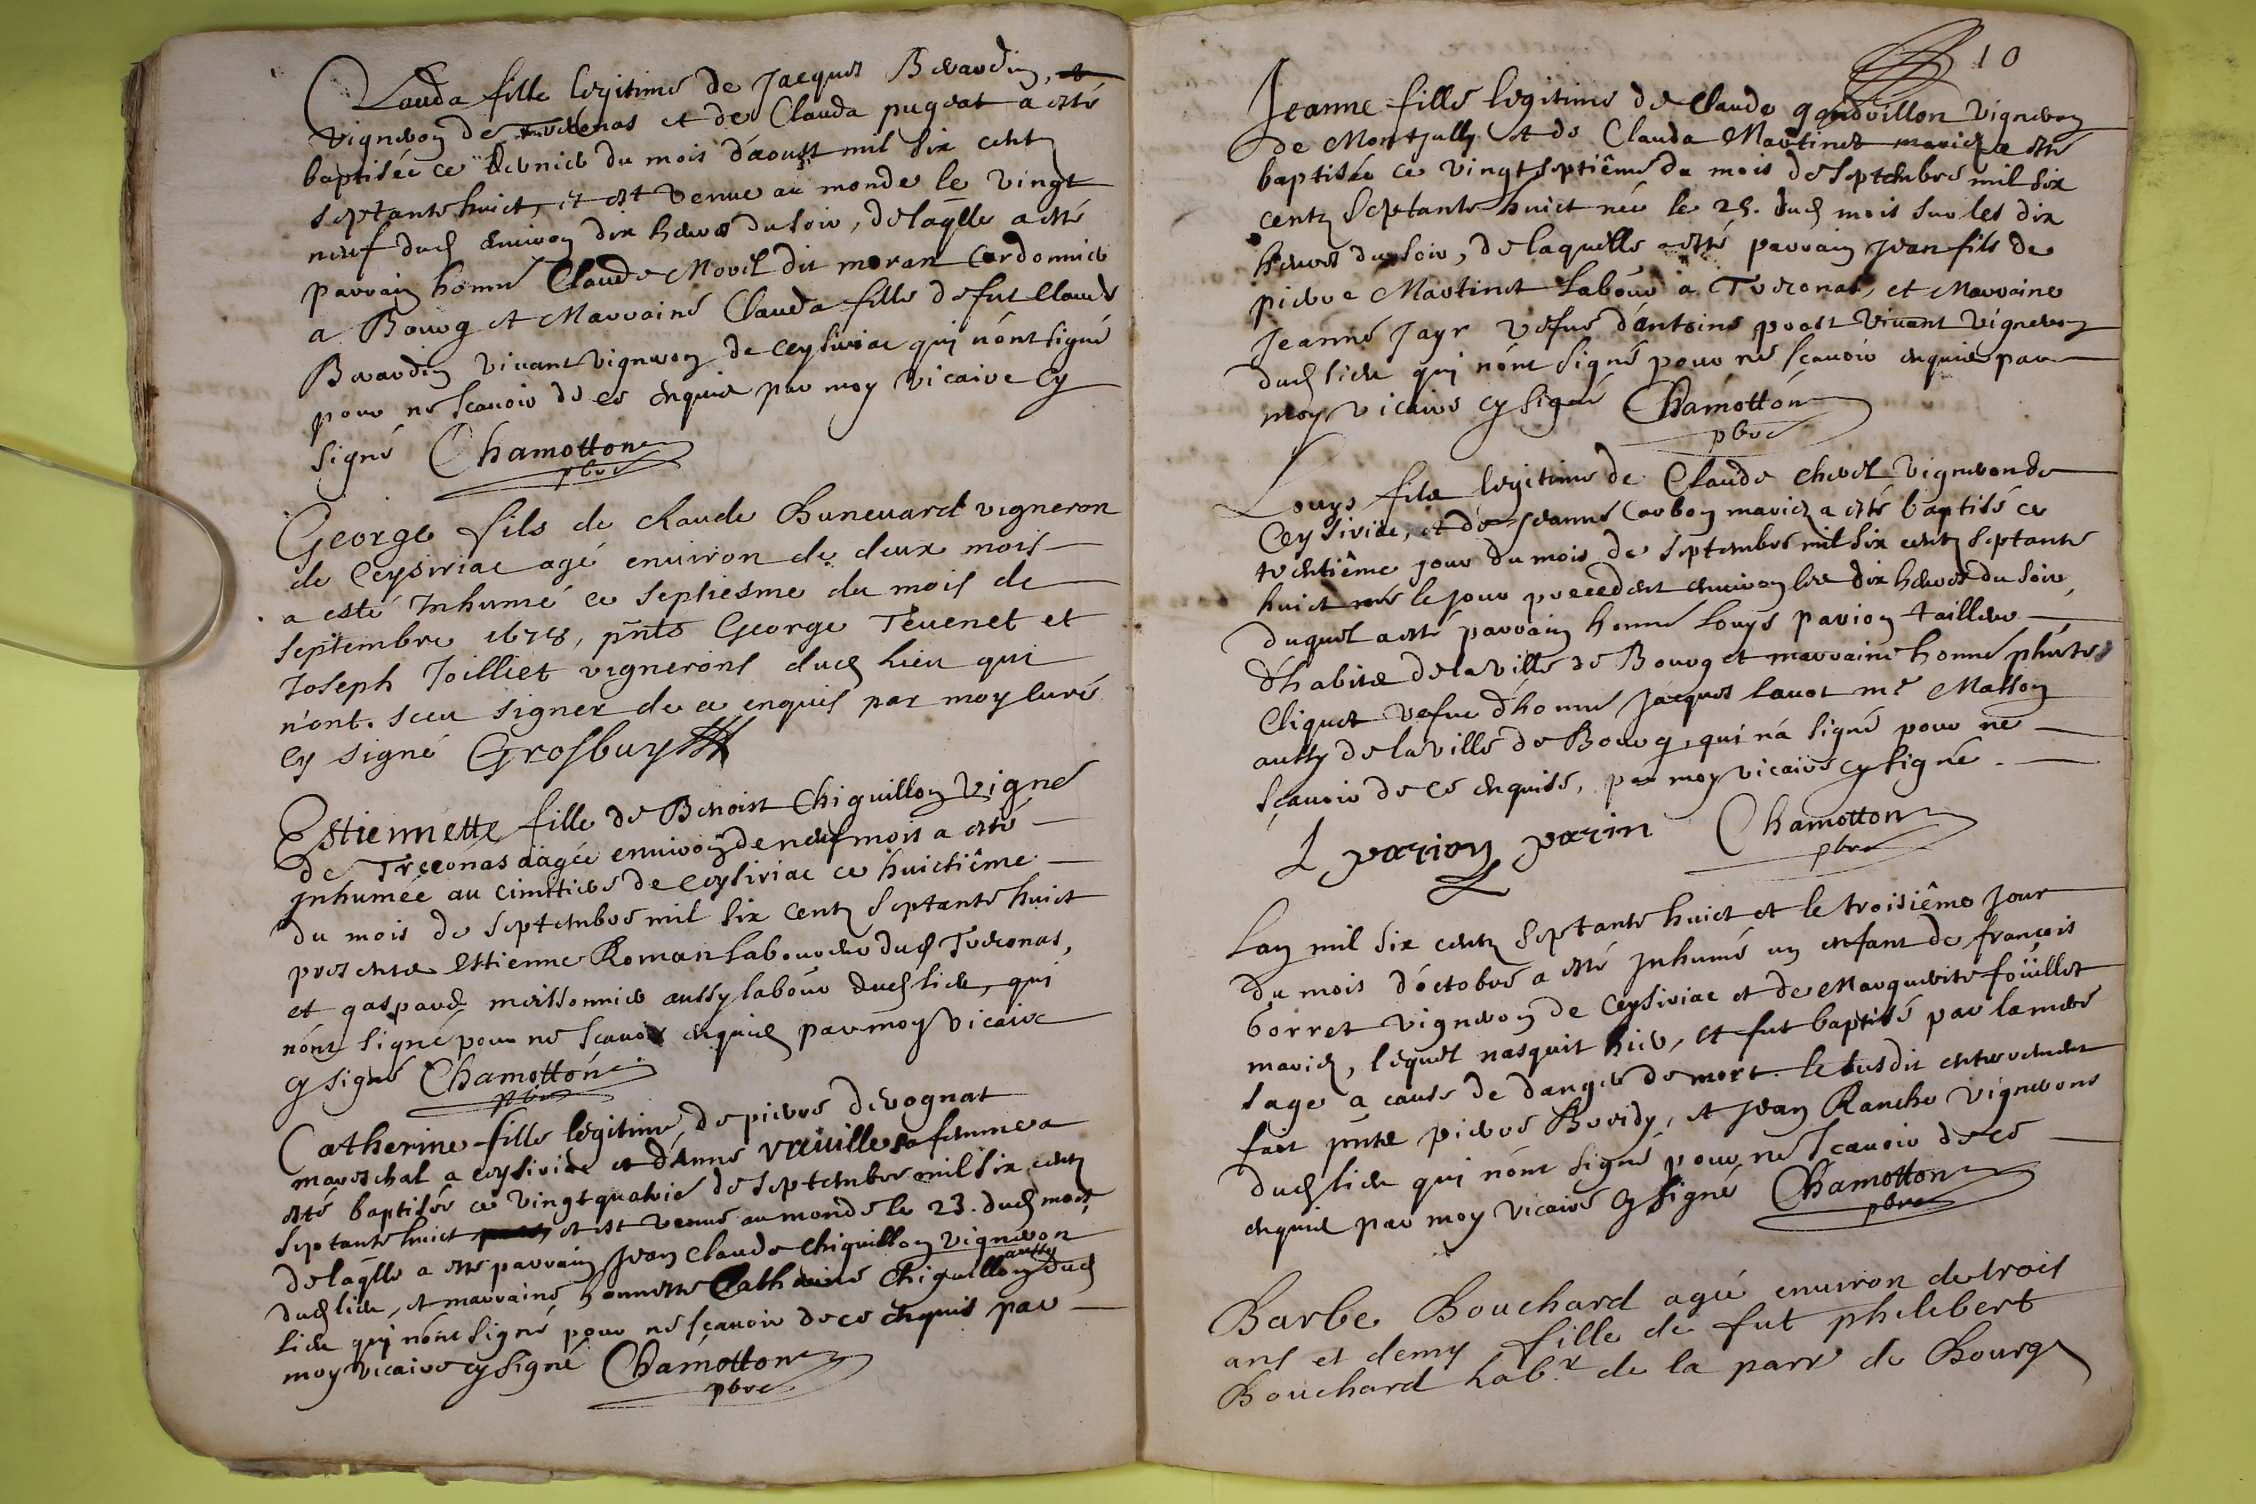 Clauda fille legitime de Jacques Berardin,
vigneron de Treconas et de Clauda pugeat a esté
baptisée ce dernier du mois d'aoust mil six centz
septante huict, et est venue au monde le vingt
neuf dud environ dix heures du soir, de laqlle a esté
parrain honné Claude Morel dit moran Cordonnier
a Bourg et Marraine Clauda fille de fut Claude
Berardin vivant vigneron de ceysiriac qui n'ont signé
pour ne scavoir de ce enquis par moy vicaire cy
signé Chamotton
pbre
George fils de Claude Bunevard vigneron
de Ceysiriac agé environ de deux mois
a esté Inhumé ce septiesme du mois de
septembre 1678, pnts George Tevenet et
Joseph Joilliet vignerons dud lieu qui
n'ont sceu signer de ce enquis par moy curé
cy signé Grosbuy
Estiennette fille de Benoist Chiguillon vigné
de Treconas aagée environ de neuf mois a esté
inhumée au cimitiere de ceysiriac ce huictiême
du mois de septembre mil six centz septante huict
presents Estienne Roman laboureur dud Treconas,
et gaspard meissonnier aussy labour dud lieu, qui
n'ont signé pour ne scavoir enquis par moy vicaire
cy signé Chamotton
pbre
Catherine fille legitime de pierre derognat
mareschal a ceysiriac et d'Anne sa femme a
esté baptisée ce vingt quatrie de septembre mil six centz
septante huict et est venue au monde le 23. dud mois,
de laqlle a esté parrain Jean Claude Chiguillon vigneron
dud lieu, et marraine honneste Catherine Chiguillon aussy dud
lieu qui n'ont signé pour ne scavoir de ce enquis par
moy vicaire cy signé Chamotton
pbre
10
Jeanne fille legitime de Claude gondvillon vigneron
de Montjully et de Clauda Martinet mariez a esté
baptisée ce vingt septiême du mois de septembre mil six
centz septante huict née le 25. dud mois sur les dix
heures du soir, de laquelle a esté parrain Jean fils de
pierre Martinet labour a Treconas, et Marraine
Jeanne Jayr vefue d'antoine prost vivant vigneron
dud lieu qui n'ont signé pour ne scavoir enquis par
moy vicaire cy signé Chamotton
pbre
Louys fils legitime de Claude chevel vigneron de
Ceysiriac, et de Jeanne Carbon mariez a esté baptisé ce
trentiême jour du mois de septembre mil six centz septante
huict né le jour precedent environ les dix heures du soir,
duquel a esté parrain honné Louys parion tailleur
d'habits de la ville de Bourg et marraine honné
Cliquet vefue d'honné Jacques lavot me Masson
aussy de la ville de Bourg, qui n'a signé pour ne
sçavoir de ce enquise, par moy vicaire cy signé.
L parion parin Chamotton
pbre
Lan mil six centz septante huict et le troisiême jour
du mois d'octobre a esté inhumé un enfant de françois
borret vigneron de ceysiriac et de Marguerite foüillet
mariez, lequel nasquit hier, et fut baptisé par la mere
sage a cause de danger de mort. le susdit enterrement
fait pnts pierre Bordy, et Jean Ranche vignerons
dud lieu qui n'ont signé pour ne scavoir de ce
enquis par moy vicaire cy signé Chamotton
pbre
Barbe Bouchard agée environ de trois
ans et demy fille de fut philebert
Bouchard habr. de la parr de Bourg